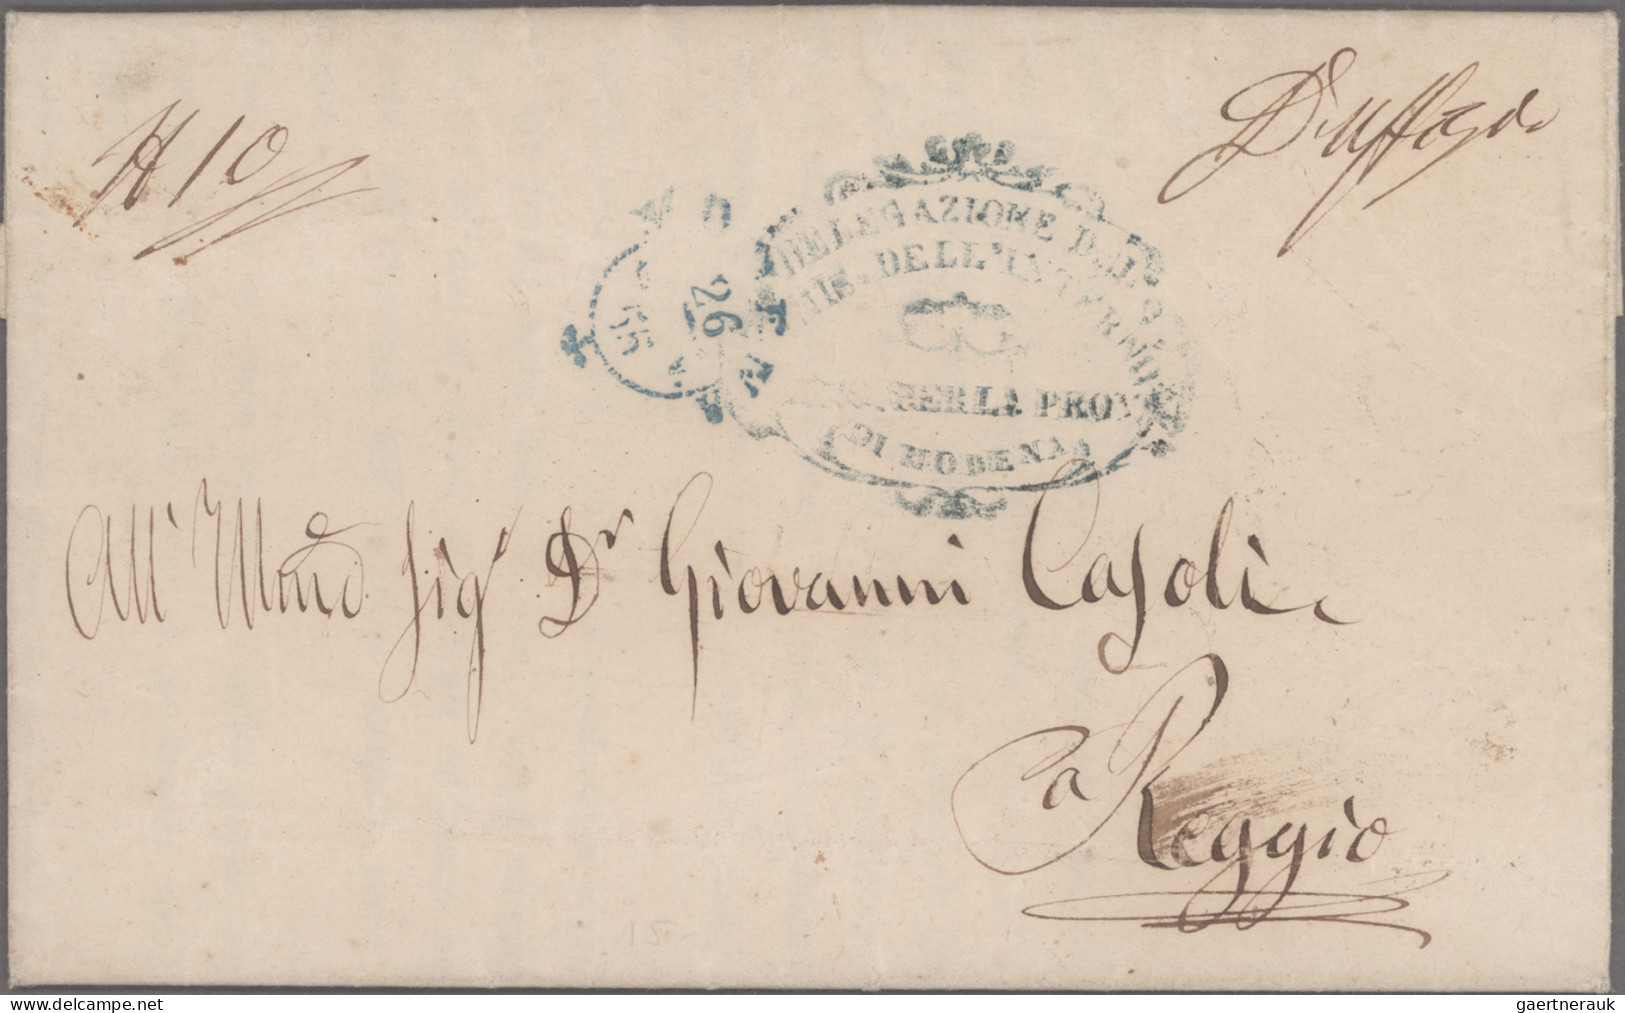 N 10
D'uffizio
DELEGAZIONE DEL
MIN. DELL'INTERNO
PER LA PROV.
DI MODENA
26
55
All' Sig.r D.r Giovanni Casoli
a Reggio
15-
www.delcampe.net
gaertnerauk